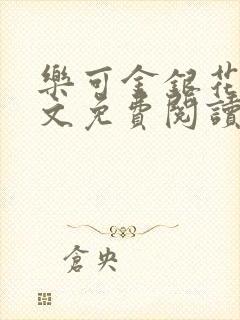 樂可金銀花
文免費閱讀
倉央